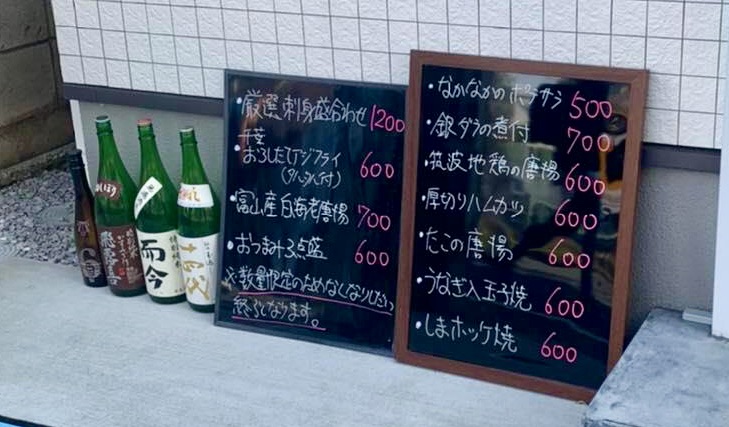 ・厳選刺身盛合わせ 1200
千葉
・おろしたてアジフライ 600
(タルタル付)
・富山産白海老唐揚 700
・おつまみ3点盛 600
※数量限定のためなくなりしだい
終了となります。
・なかなかのポテサラ 500
・銀ダラの煮付 700
・筑波地鶏の唐揚 600
・厚切りハムカツ 600
・たこの唐揚 600
・うなぎ入玉子焼 600
・しまホッケ焼 600
而今
十四代